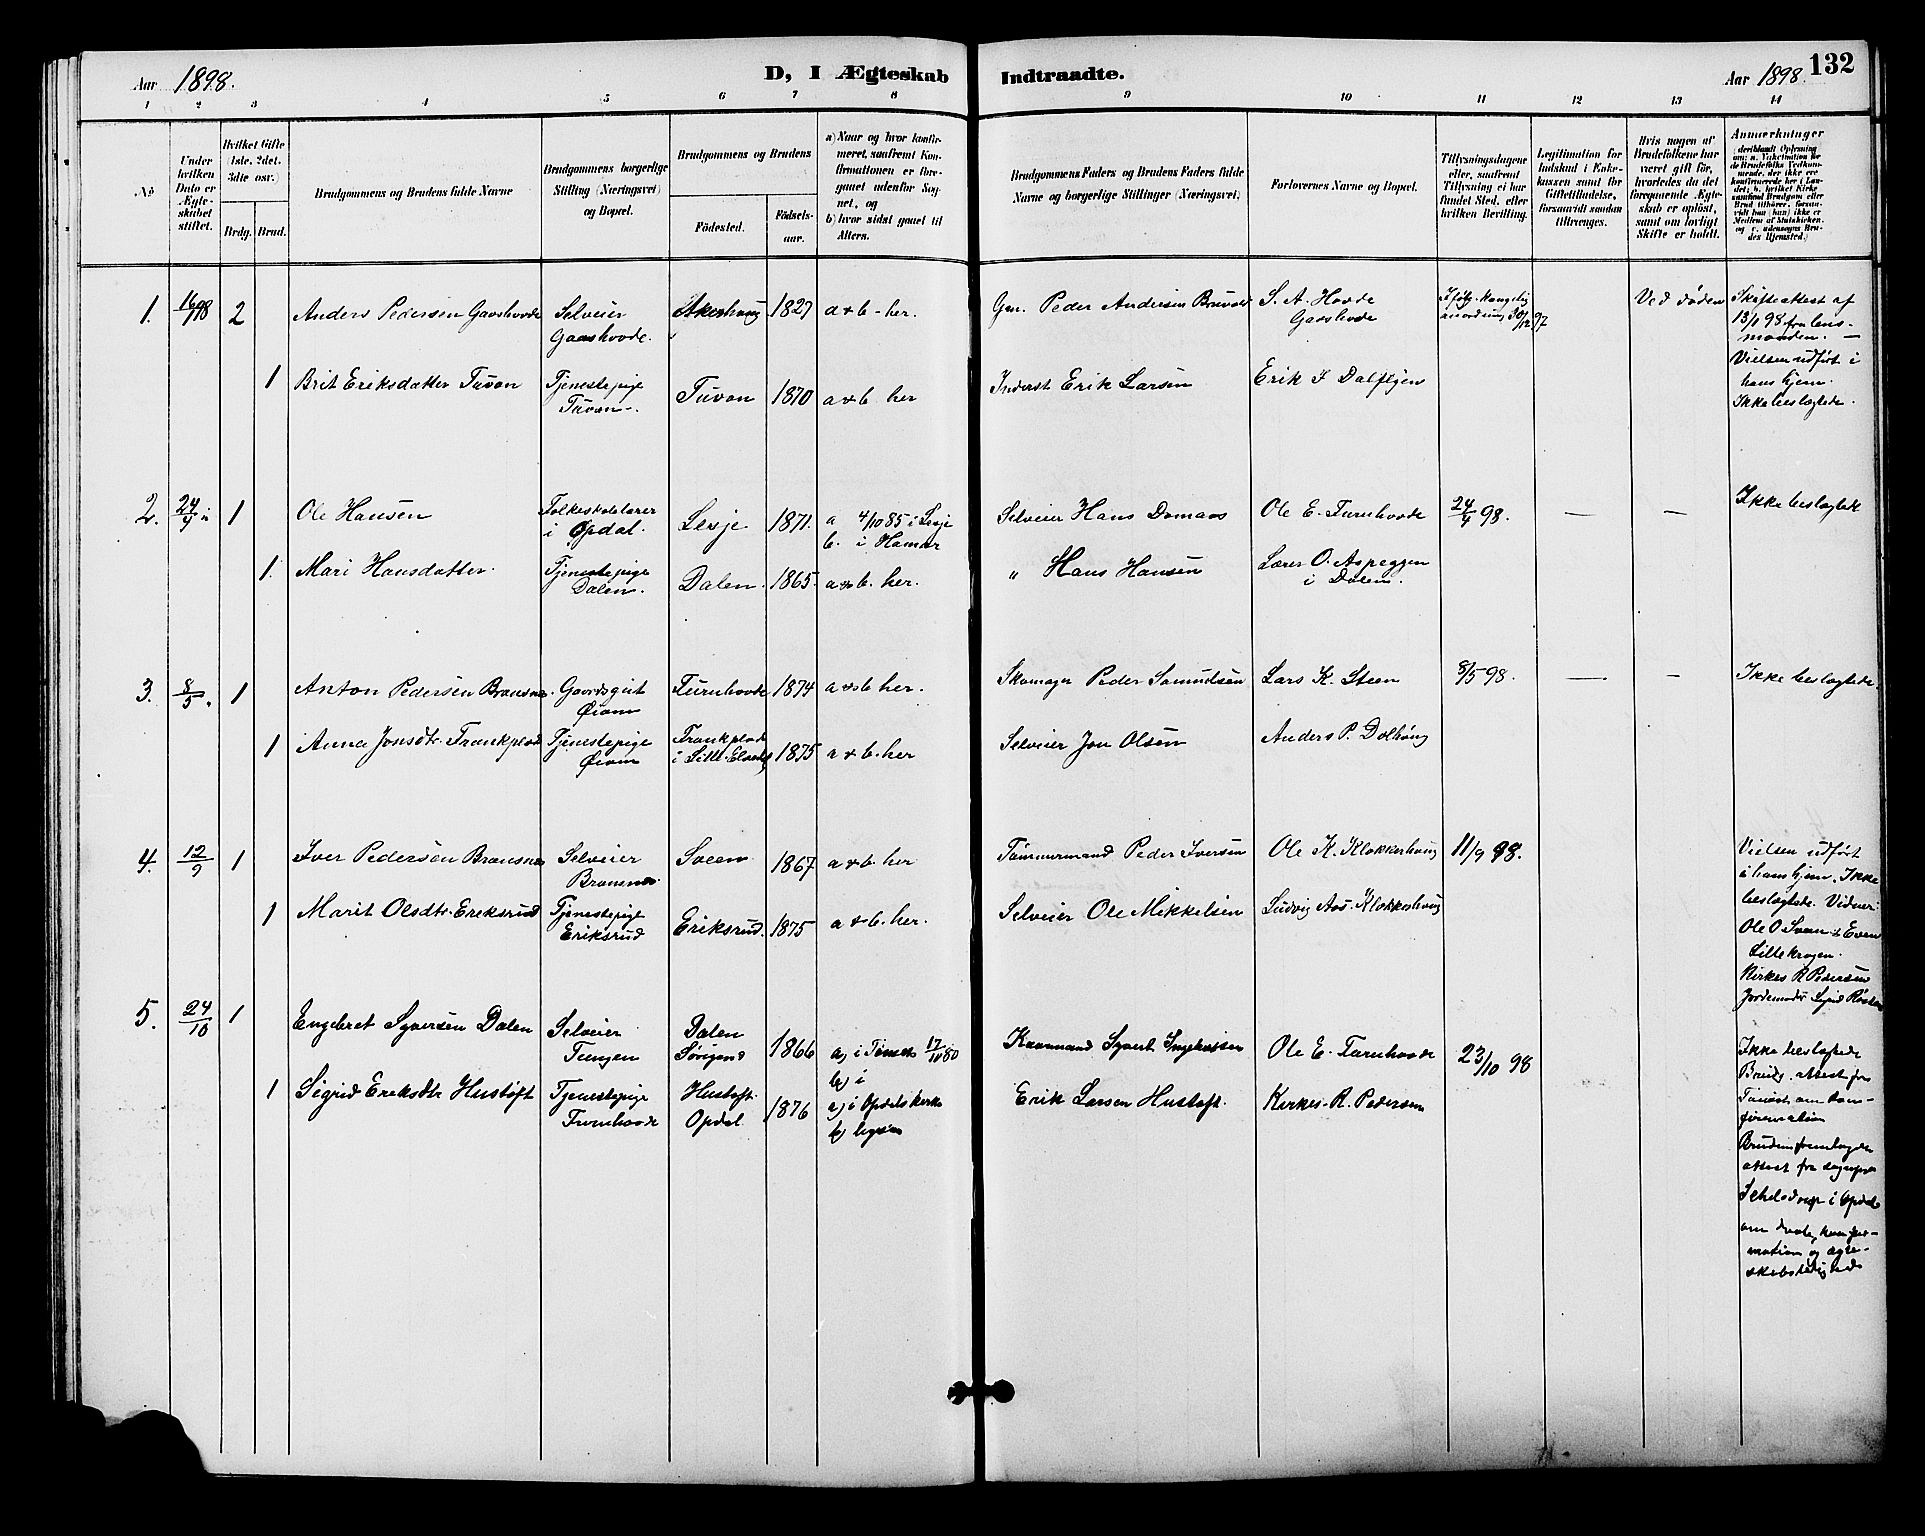 Aar 1898.
D, I Ægteskab
Indtraadte.
Aar 1898.
132
1 2 3 4 5 6 7 8 9 10 11 12 13 14
No
Under hvilken Dato er Ægteskabet stiftet.
Hvilket Gifte (1ste, 2det, 3dte osv.)
Brdg. Brud.
Brudgommens og Brudens fulde Navne
Brudgommens borgerlige Stilling (Næringsvei) og Bopæl.
Brudgommens og Brudens
Födested.
Födsels-aar.
a) Naar og hvor konfirmeret, saafremt Konfirmationen er foregaaet udenfor Sognet, og
b) hvor sidst gaaet til Alters.
Brudgommens Faders og Brudens Faders fulde Navne og borgerlige Stillinger (Næringsvei).
Forlovernes Navne og Bopæl.
Tillysningsdagene eller, saafremt Tillysning ei har fundet Sted, efter hvilken Bevilling.
Legitimation for Indskud i Enkekassen samt for Giftetilladelse, forsaavidt saadan tiltrænges.
Hvis nogen af Brudefolkene har været gift før, hvorledes da det foregaaende Ægteskab er oplöst, samt om lovligt Skifte er holdt.
Anmærkninger
1. 2 Anders Pedersen Gaashovde Selveier Gaashovde. Akershaug 1827 a & b - her. Gm. Peder Andersen Bruvold S. A. Hovde Gaashovde Ifølg. kongelig anordning 30/12 97 Ved döden Skifteattest af 13/1 98 fra lensmanden. — Vielsen udført i hans hjem. Ikke beslægtede.
1 Brit Eriksdatter Tuvan Tjenestepige Tuvan. Tuvan 1870 a & b. her Inderst Erik Larsen Erik I Dalflyen
2. 24/4 1 Ole Hansen Folkeskolelærer i Opdal. Lesje 1871. a 4/10 85 i Lesje b. i Hamar Selveier Hans Domaas Ole E. Turnhovde 24/4 98. — — Ikke beslægtede
1. Mari Hansdatter. Tjenestepige Dalen. Dalen. 1865. a & b. her. " Hans Hansen Lærer O. Aspeggen i Dalen.
3. 8/5 1 Anton Pedersen Bransnes. Gaardsgut Øian Turnhovde 1874 a & b her. Skomager Peder Samuelsen Lars K. Steen 8/5 98. — — Ikke beslægtede.
1 Anna Jonsdtr. Frankplad Tjenestepige Øian Frankplads i Lille-Elvdal 1875 a & b. her Selveier Jon Olsen Anders P. Dalhaug
4. 12/9 1 Iver Pedersen Bransnes Selveier Bransnes Sveen 1867. a & b. her Tømmermand Peder Iversen Ole K. Klokkerhaug 11/9 98. Vielsen udført i hans hjem. Ikke beslægtede. Vidner: Ole O Svean & Even Lillekrogen. Kirkes R Pedersen Jordemoder Sigrid Røsten
1 Marit Olsdtr. Eriksrud Tjenestepige Eriksrud Eriksrud. 1875 a & b. her. Selveier Ole Mikkelsen Ludvig Aas. Klokkerhaug
5. 24/10 1 Engebret Syversen Dalen Selveier Tungen Dalen 1866 a) i Tønset 17/11 80 b) i Syvert Ole E. Turnhovde 23/10 98 Ikke beslægtede attest fra Tønset om konfirmation
1 Sigrid Eriksdtr Hustøft Tjenestepige Turnhovde Hustøft Opdal. 1876 a) i Opdals kirke b) Erik Larsen Hustøft. Kirkes. R. Pedersen Bruden fremlagde attest fra sognepr i Opdal om daab, konfirmation og ægteskabsledighed